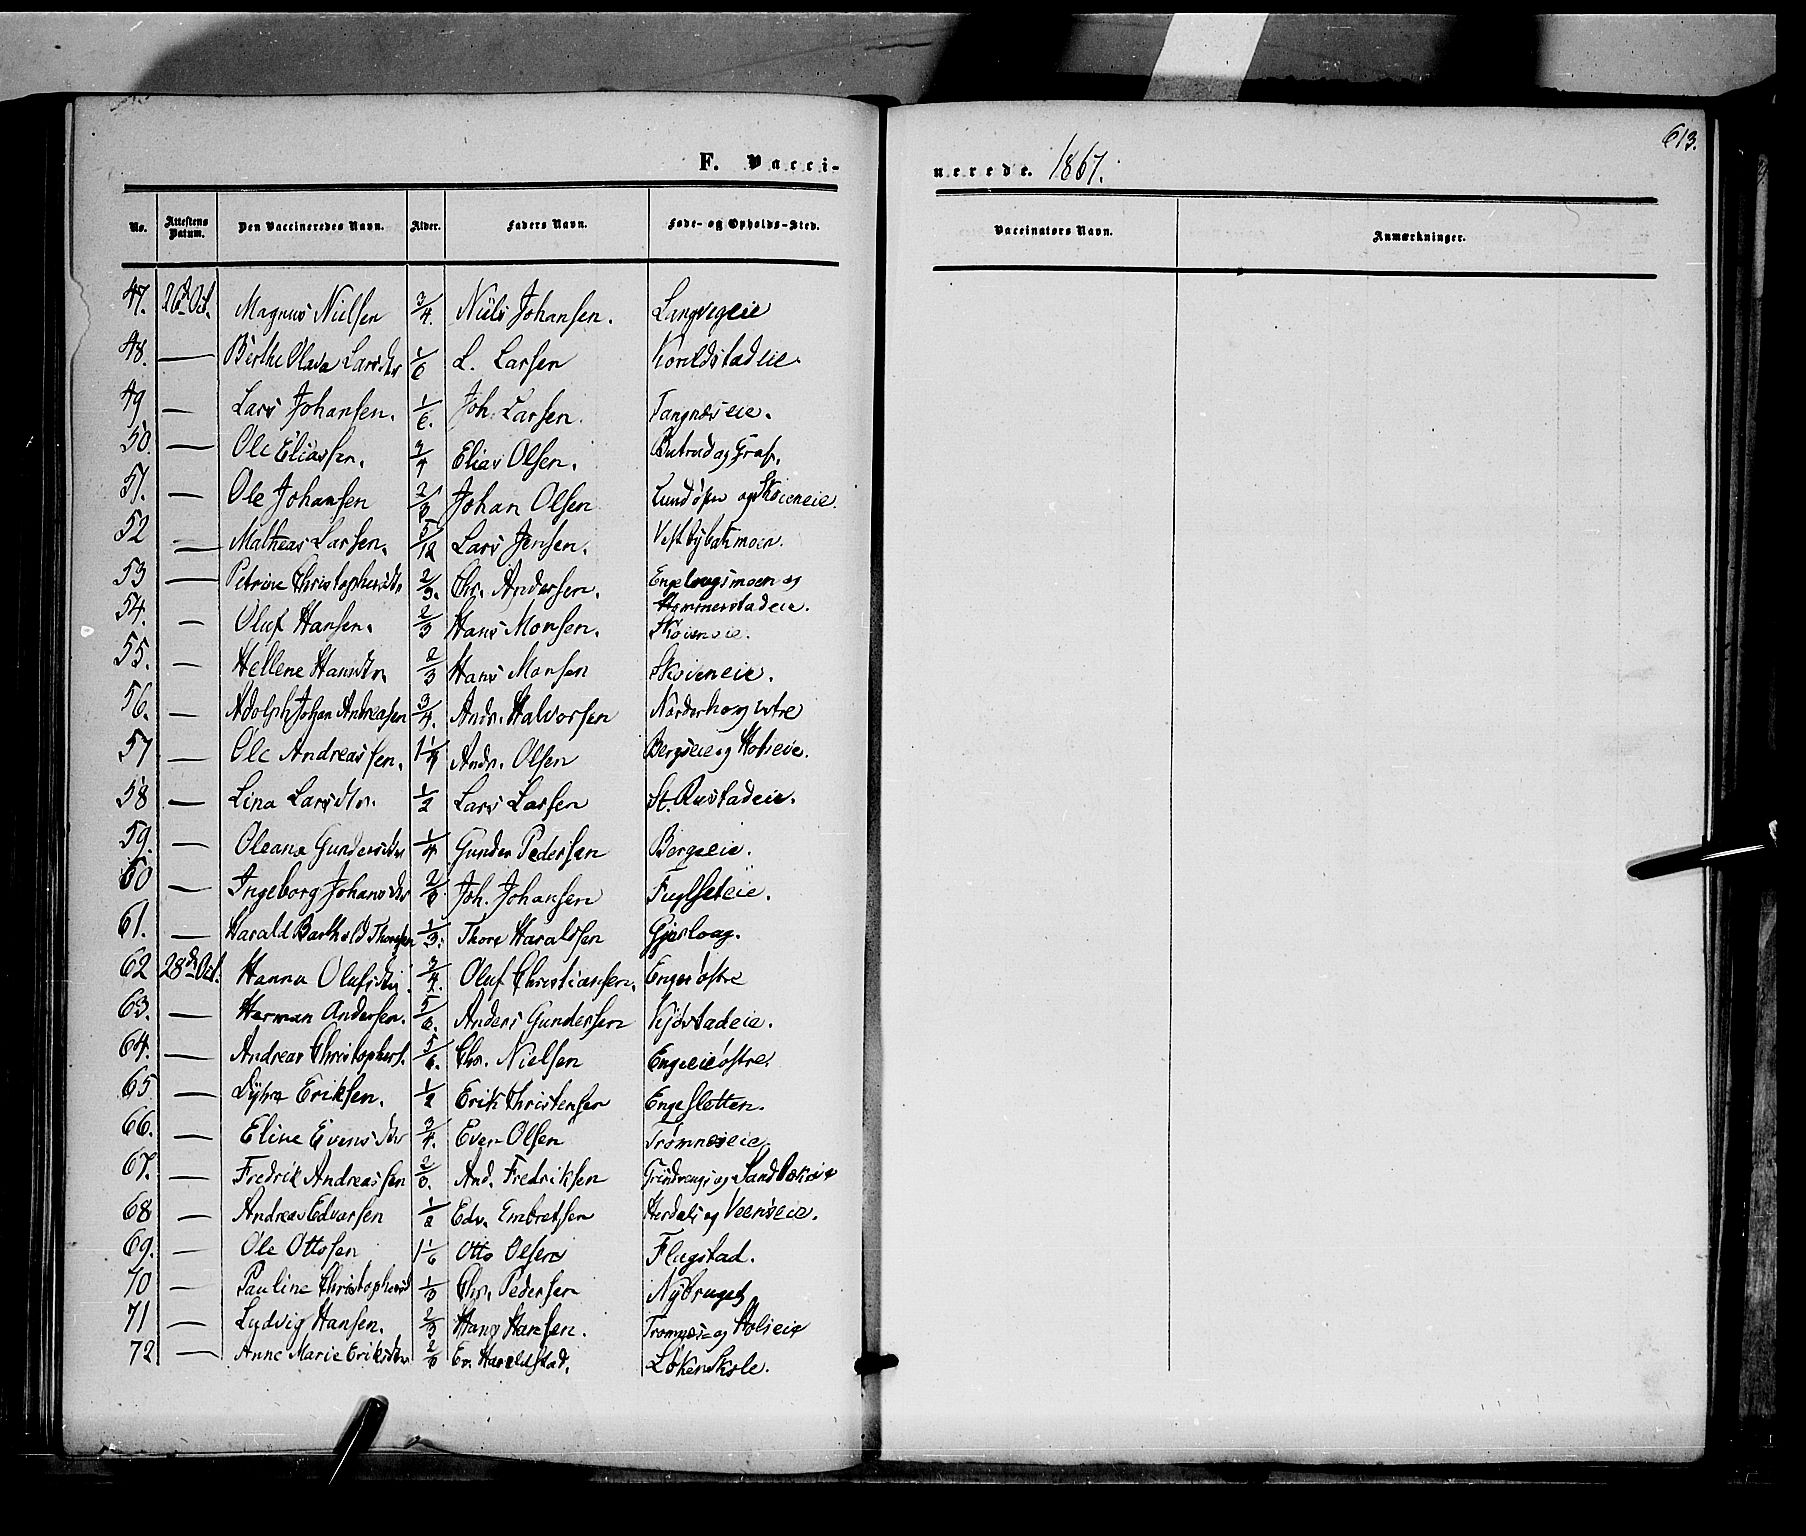 613.
F. Vacci-
nerede. 1867.
No. Attestens Datum. Den Vaccineredes Navn. Alder. Faders Navn. Føde- og Opholds-Sted. Vaccinatørs Navn. Anmærkninger.
47. 26d Oct. Magnus Nielsen 3/4. Niels Johansen. Langvegeie
48. — Birthe Olava Larsdtr 1/6 L. Larsen
49 — Lars Johansen. 1/6. Joh. Larsen. Tangnæseie.
50. — Ole Eliassen. 3/4 Elias Olsen.
51. — Ole Johansen 2/3 Johan Olsen Lund østre og Skoieneie.
52 — Matheas Larsen. 5/12 Lars Jensen. Vestbybakmoen.
53 — Petrine Christophersdtr 2/3. Chr. Andersen. Engelaugsmoen og Hommerstadeie.
54. — Oluf Hansen. 2/3 Hans Monsen. Skoieneie.
55. — Hellene Hansdtr 2/3 Hans Monsen Skoieneie.
56. — Adolph Johan Andreasen 3/4. Andr. Halvorsen Norderhoug vstre
57 — Ole Andreassen. 1 1/4 Andr. Olsen Bergseie og Holseie.
58 — Lina Larsdtr. 1/2 Lars Larsen St. Rustadeie.
59. — Oleana Gundersdtr 1/4 Gunder Pedersen Bergseie.
60 — Ingeborg Johansdtr 2/3. Joh. Johansen Fuglseteie.
61. — Harald Barthold Thoresen 1/3. Thore Haralsen Gjørloug.
62 28d Oct. Hanna Olufsdtr. 3/4. Oluf Christiansen. Enger østre
63. — Herman Andersen. 5/6. Anders Gundersen Kjøstadeie.
64. — Andreas Christophers. 5/6. Chr. Nielsen Engeeie østre
65 — Eriksen. 1/2 Erik Christensen Engesletten.
66. — Eline Evensdtr 3/4. Even Olsen Trømnæseie
67. — Fredrik Andreassen 2/3. And. Fredriksen Grindvengs og Sandbækeie
68 — Andreas Edvarsen 1/2 Edv. Embretsen Herdals og Veenseie.
69. — Ole Ottosen 1 1/6 Otto Olsen Flugstad.
70 — Pauline Christophersd 1/3 Chr. Pedersen Nybruget
71 — Ludvig Hansen. 2/3 Hans Hansen. Tromnæs- og Holseie
72 — Anne Marie Eriksdtr 2/3 Er. Haraldstad. Løken Skole.